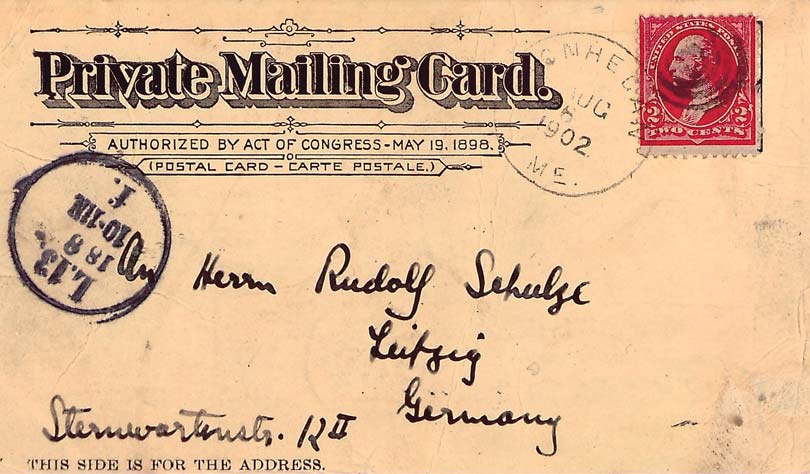 Private Mailing Card.
AUTHORIZED BY ACT OF CONGRESS-MAY 19. 1898.
(POSTAL CARD - CARTE POSTALE.)
AUG
1902
ME.
UNITED STATES POSTAGE
2 2
TWO CENTS
L.13
18 8
An Herrn Rudolf Schulze
Leipzig
Germany
Sternwartenstr. II
THIS SIDE IS FOR THE ADDRESS.